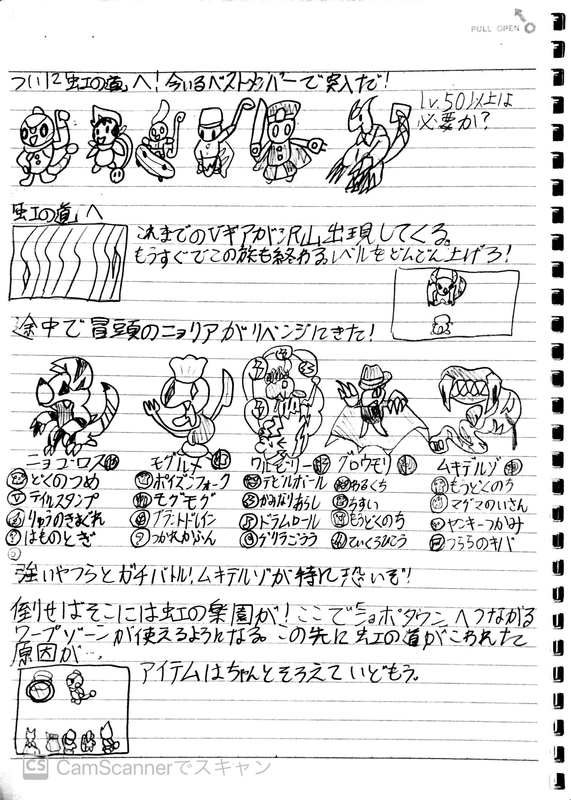 PULL OPEN
ついに虹の道へ!今いるベストメンバーで突入だ!
Lv.50以上は
必要か?
虹の道へ
これまでのVギアが沢山出現してくる。
もうすぐでこの旅も終わる。レベルをどんどん上げろ!
途中で冒頭のニョリアがリベンジにきた!
ニョゴロス モグルメ ワルモーリー グロウモリ ムキデルゾ
どくのつめ ポイズンフォーク デビルボール わるくち もうどくのう
テイルスタンプ モグモグ かみなりあらし ちすい マグマのいさん
りゅうのきまぐれ プラントドレイン ドラムロール もうどくのち ヤンキーつかみ
はものとぎ つかれかふん ゲリラごうう ていくうひこう つららのキバ
強いやつらとガチバトル!ムキデルゾが特に恐いぞ!
倒せばそこには虹の楽園が!ここでジョポタウンへつながる
ワープゾーンが使えるようになる。この先に虹の道がこわれた
原因が…
アイテムはちゃんとそろえていどもう。
CS CamScannerでスキャン